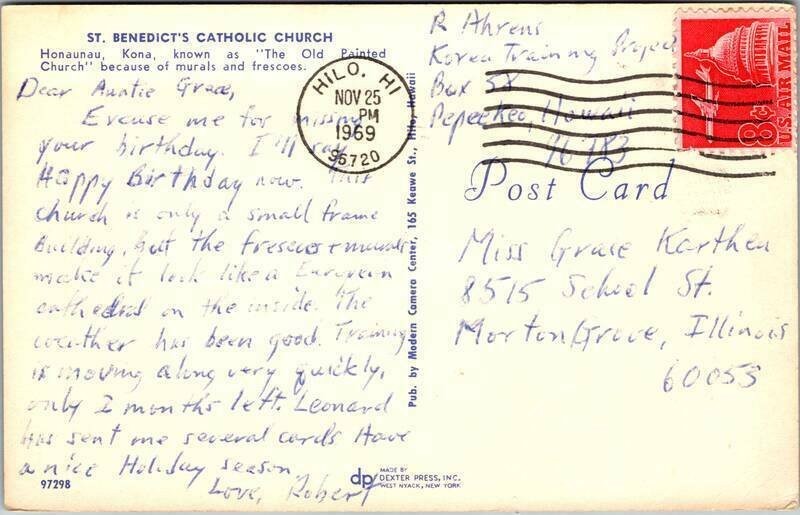 ST. BENEDICT'S CATHOLIC CHURCH
Honaunau, Kona, known as "The Old Painted
Church" because of murals and frescoes.
Dear Auntie Grace,
Excuse me for missing
your birthday. I'll say
Happy Birthday now. This
church is only a small frame
building, but the frescoes + murals
make it look like a European
cathedral on the inside. The
weather has been good. Training
is moving along very quickly,
only 2 months left. Leonard
has sent me several cards Have
a nice Holiday season.
Love, Robert
97298
HILO, HI
NOV 25
PM
1969
96720
Pub. by Modern Camera Center, 165 Keawe St., Hilo, Hawaii
dp MADE BY
DEXTER PRESS, INC.
WEST NYACK, NEW YORK
R Ahrens
Korea Training Project
Box 58
Pepeekeo, Hawaii
96783
8¢
U.S. AIR MAIL
Post Card
Miss Grace
8515 School St.
Morton Grove, Illinois
60053